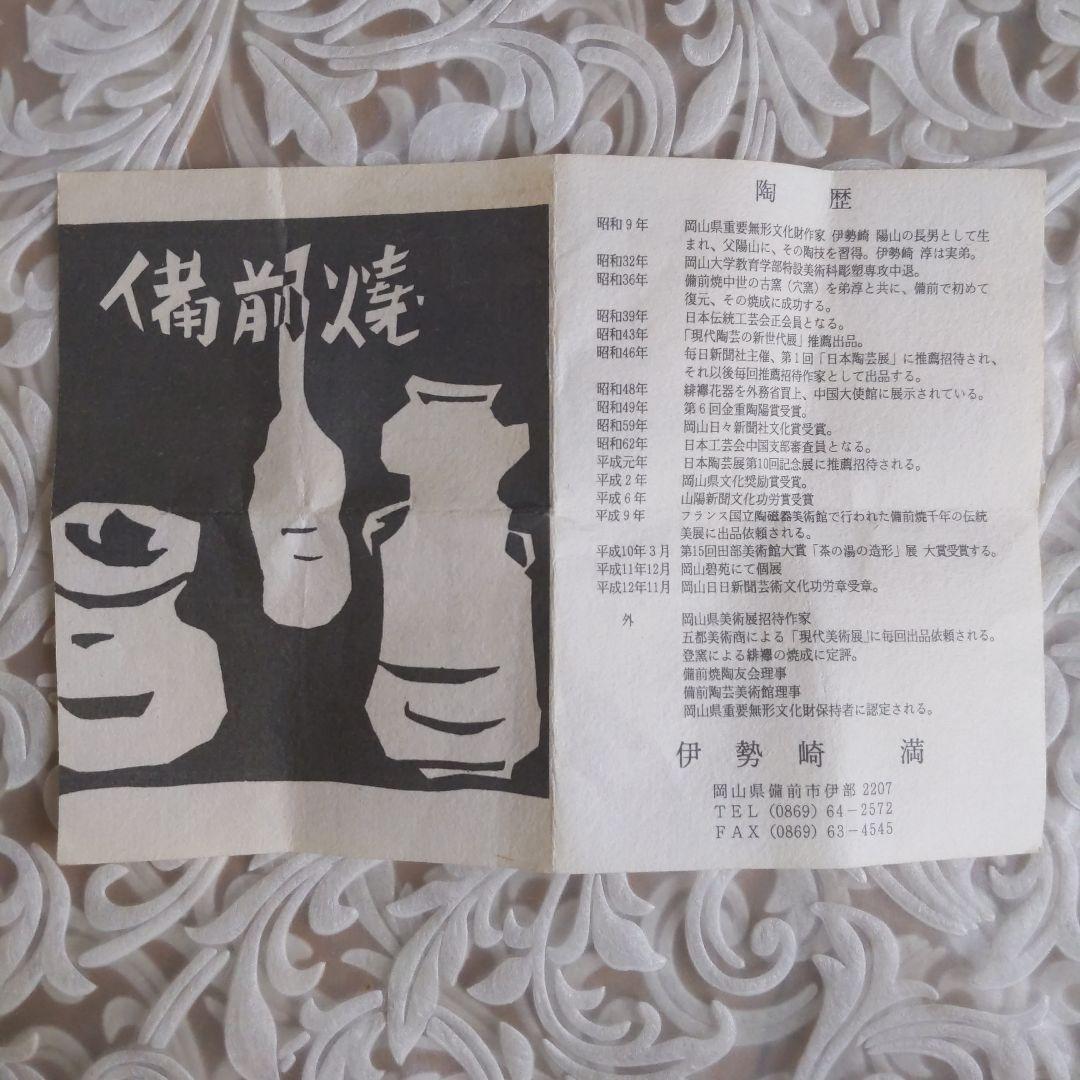 備前燒
陶歴
昭和9年 岡山県重要無形文化財作家 伊勢崎 陽山の長男として生
まれ、父陽山に、その陶技を習得。伊勢崎 淳は実弟。
昭和32年 岡山大学教育学部特設美術科彫塑専攻中退。
昭和36年 備前焼中世の古窯（穴窯）を弟淳と共に、備前で初めて
復元、その焼成に成功する。
昭和39年 日本伝統工芸会正会員となる。
昭和43年 「現代陶芸の新世代展」推薦出品。
昭和46年 毎日新聞社主催、第1回「日本陶芸展」に推薦招待され、
それ以後毎回推薦招待作家として出品する。
昭和48年 緋襷花器を外務省買上、中国大使館に展示されている。
昭和49年 第6回金重陶陽賞受賞。
昭和59年 岡山日々新聞社文化賞受賞。
昭和62年 日本工芸会中国支部審査員となる。
平成元年 日本陶芸展第10回記念展に推薦招待される。
平成2年 岡山県文化奨励賞受賞。
平成6年 山陽新聞文化功労賞受賞
平成9年 フランス国立陶磁器美術館で行われた備前焼千年の伝統
美展に出品依頼される。
平成10年3月 第15回田部美術館大賞「茶の湯の造形」展 大賞受賞する。
平成11年12月 岡山碧苑にて個展
平成12年11月 岡山日日新聞芸術文化功労章受章。
外 岡山県美術展招待作家
五都美術商による「現代美術展」に毎回出品依頼される。
登窯による緋襷の焼成に定評。
備前焼陶友会理事
備前陶芸美術館理事
岡山県重要無形文化財保持者に認定される。
伊勢崎 満
岡山県備前市伊部2207
TEL (0869) 64-2572
FAX (0869) 63-4545